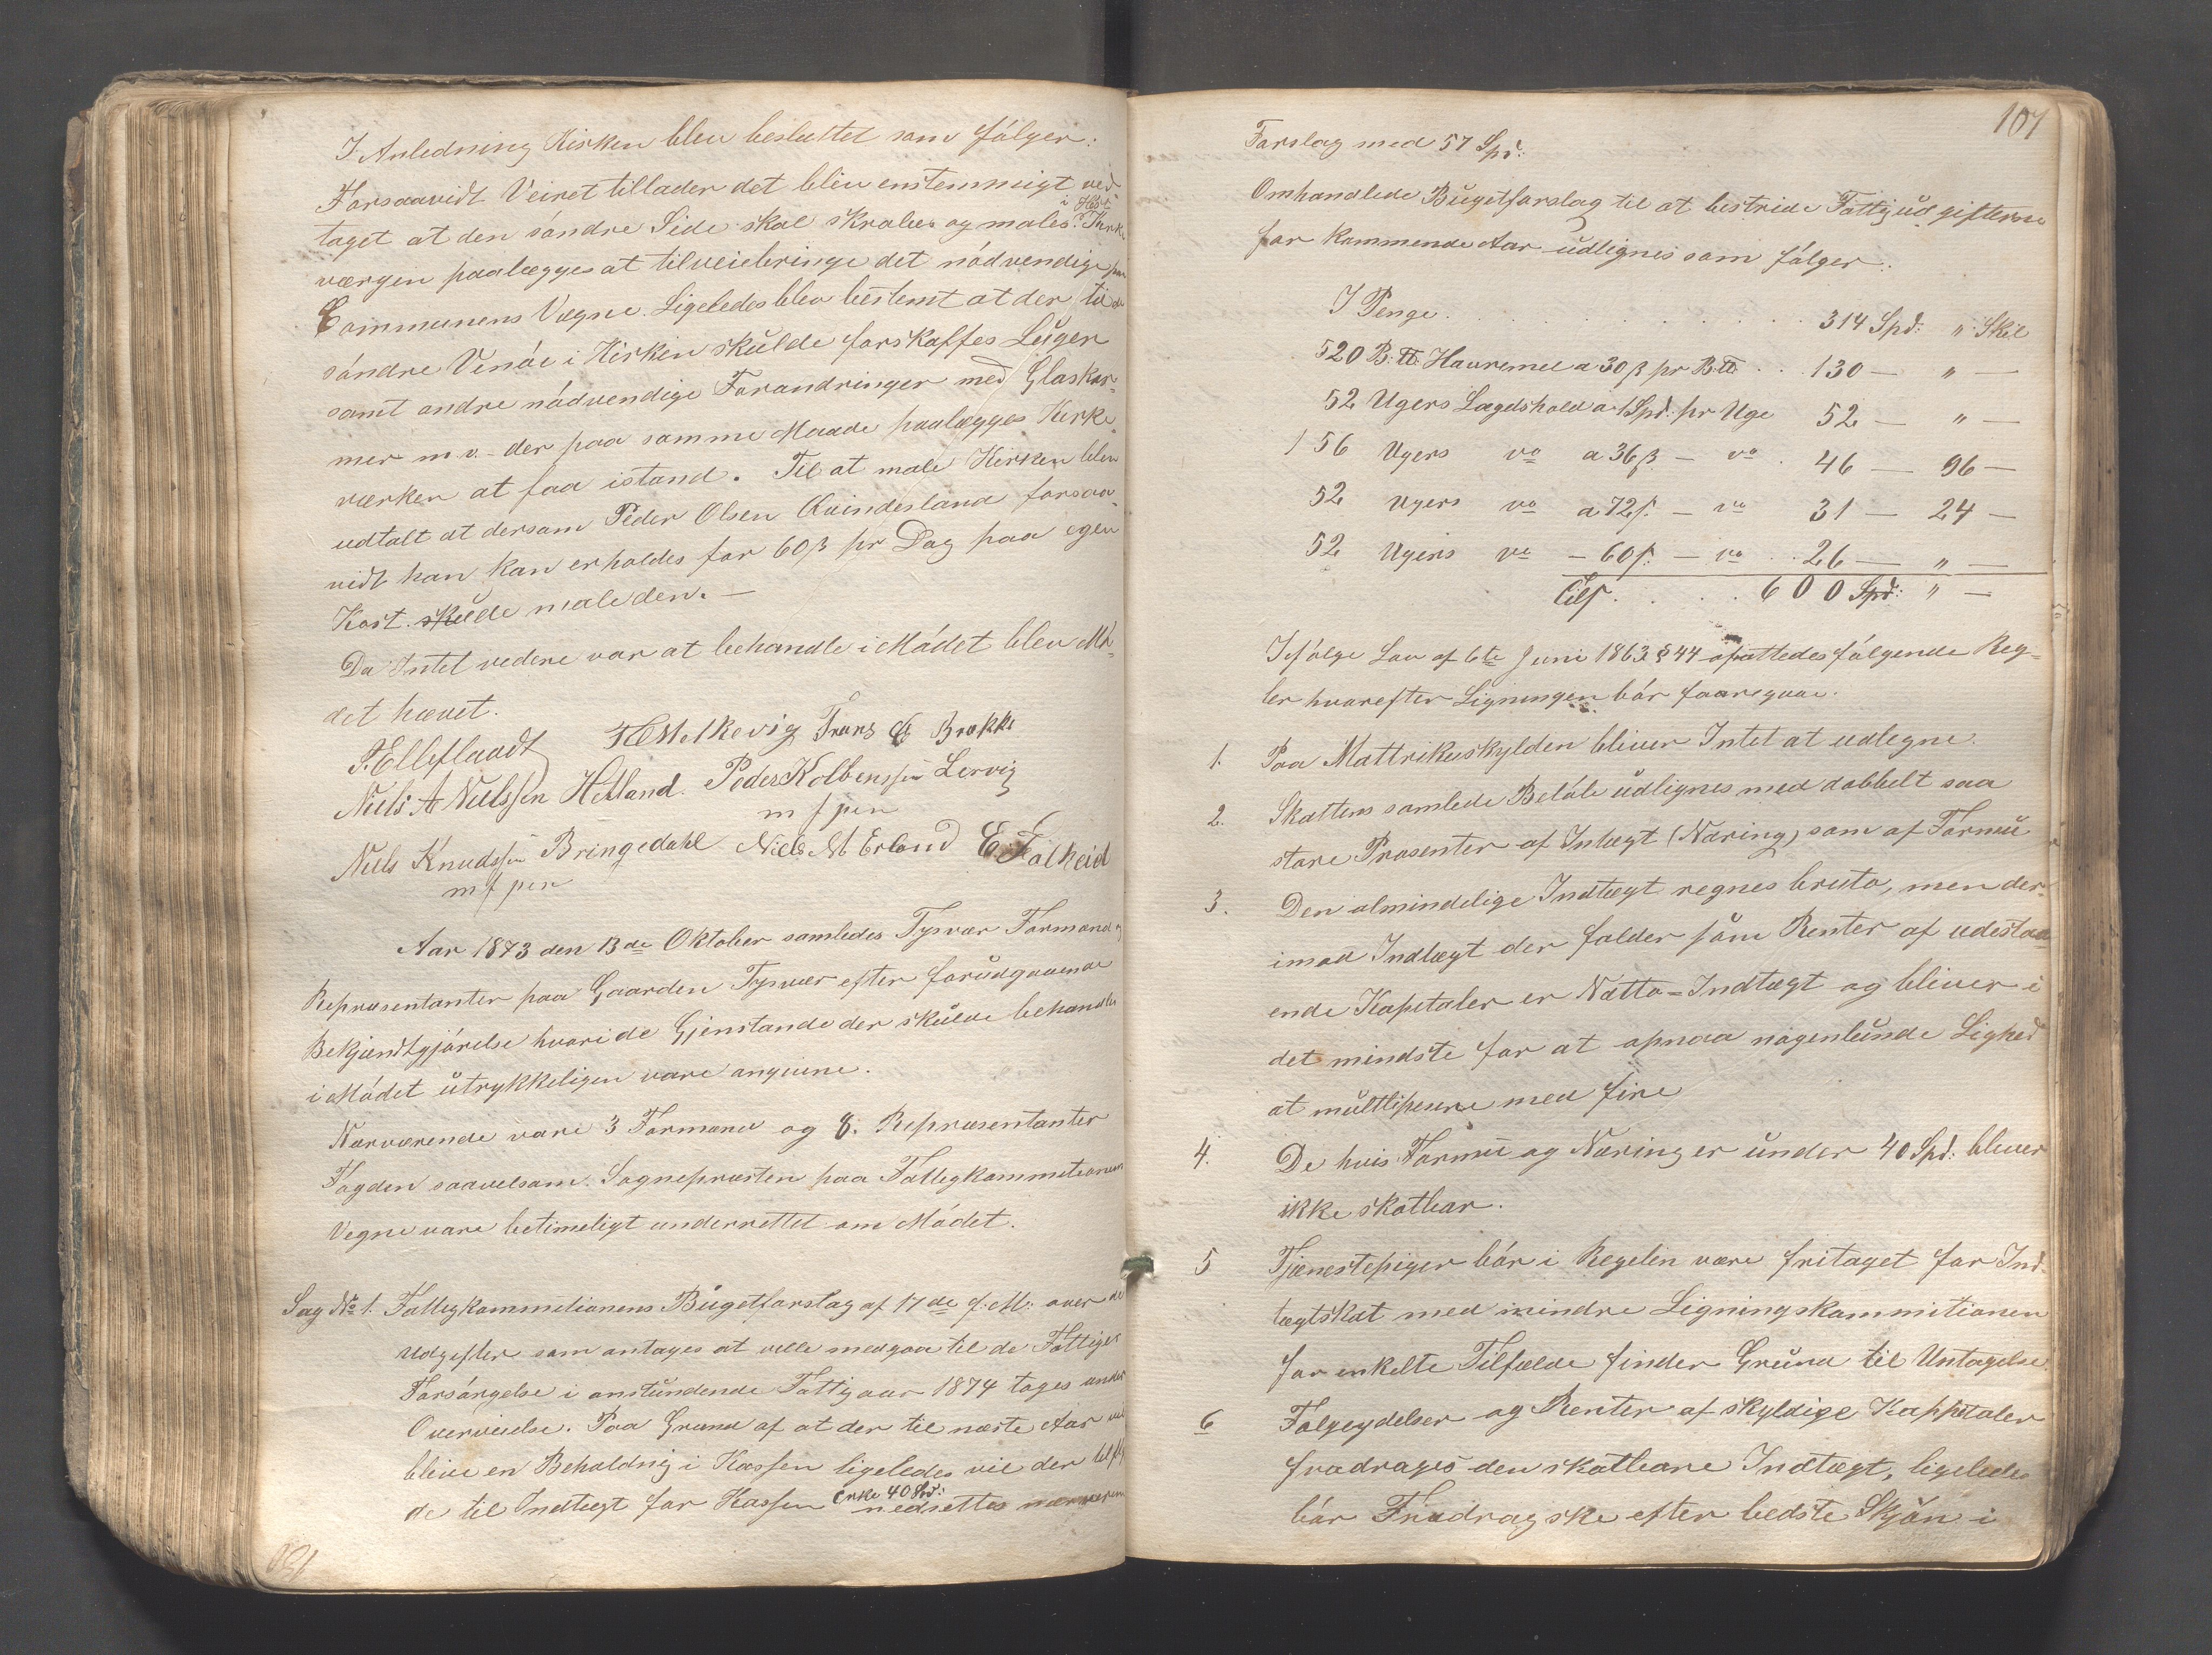 I Anledning Kirken blev besluttet som følger:
Forsaavidt Veiret tillader det blev enstemmigt ved-
i Høst
taget at den søndre Side skal skrabes og males. Kirke
værgen paalægges at tilveiebringe det nødvendige paa
Communens Vegne. Ligeledes blev bestemt at der til de
søndre Vinduer i Kirken skulde forskaffes Luger
samt andre nødvendige Forandringer med Glaskar-
mer m v. der paa samme Maade paalægges Kirke
værken at faa istand. Til at male Kirken blev
udtalt at dersom Peder Olsen Qvindesland forsaa-
vidt han kan erholdes for 60 β pr Dag paa egen
Kost skulde male den. —
Da Intet videre var at behandle i Mødet blev Mø-
det hævet.
P. Elleflaadt H Stolkevig Frans G Brokke
Niels A Nielssen Hetland. Peder Kolbenssen Lervig
m f pen
Niels Knudssen Bringedahl Niels M Erland E Falkeid
m f pen
Aar 1873 den 13de Oktober samledes Tysvær Formænd og
Repræsentanter paa Gaarden Tysvær efter forudgaaende
Bekjændtgjørelse hvori de Gjenstande der skulde behandles
i Mødet utrykkeligen vare angivne.
Nærværende vare 3 Formænd og 8. Repræsentanter
Fogden saavelsom Sognepræsten paa Fattigkommitionens
Vegne vare betimeligt underrettet om Mødet.
Sag No 1. Fattigkommitionens Bugetforslag af 17de f. M: over de
Udgifter som antages at ville medgaa til de Fattiges
Forsørgelse i anstundende Fattigaar 1874 toges under
Overveielse. Paa Grund af at der til næste Aar vil
blive en Beholdnig i Kassen ligeledes vil der tilfly
de til Indtægt for Kassen cirka 40 Spd: nedsettes nærværende
130
107
Forslag med 57 Spd:
Omhandlede Bugetforslag til at bestride Fattigudgifterne
for kommende Aar udlignes som følger:
I Penge . . . . . . . . . . 314 Spd: " Skil
520 B: ℔ Havremel a 30 β pr B: ℔ . . 130 — " —
52 Ugers Lægdshold a 1 Spd: pr Uge 52 — " —
156 Ugers do a 36 β — do . 46 — 96 —
52 Ugers do a 72 β. — do 31 — 24 —
52 Ugers do — 60 β. — do . . 26 — " —
Tils. . . . . 600 Spd: " —
Ifølge Lov af 6te Juni 1863 § 44 afattedes følgende Reg=
ler hvorefter Ligningen bør foaregaae.
1. Paa Mattrikuskylden bliver Intet at udlegne
2. Skattens samlede Beløb udlignes med dobbelt saa
store Prosenter af Intægt (Næring) som af Formue
3. Den almindelige Indtægt regnes bruto, men der-
imod Indtægt der falder som Renter af udestaa
ende Kapitaler er Nætto=Indtægt og bliver i
det mindste for at opnaa nogenlunde Lighed
at multtiplisere med fire
4. De hvis Formue og Næring er under 40 Spd: bliver
ikke skatbar.
5 Tjenestepiger bør i Regelen være fritaget for Ind-
tægtskat med mindre Ligningskommitionen
for enkelte Tilfælde finder Grund til Untagelse.
6 Følgeydelser og Renter af skyldige Kappitaler
fradrages den skatbare Indtægt, ligeledes
bør Fradrag ske efter bedste Skjøn i